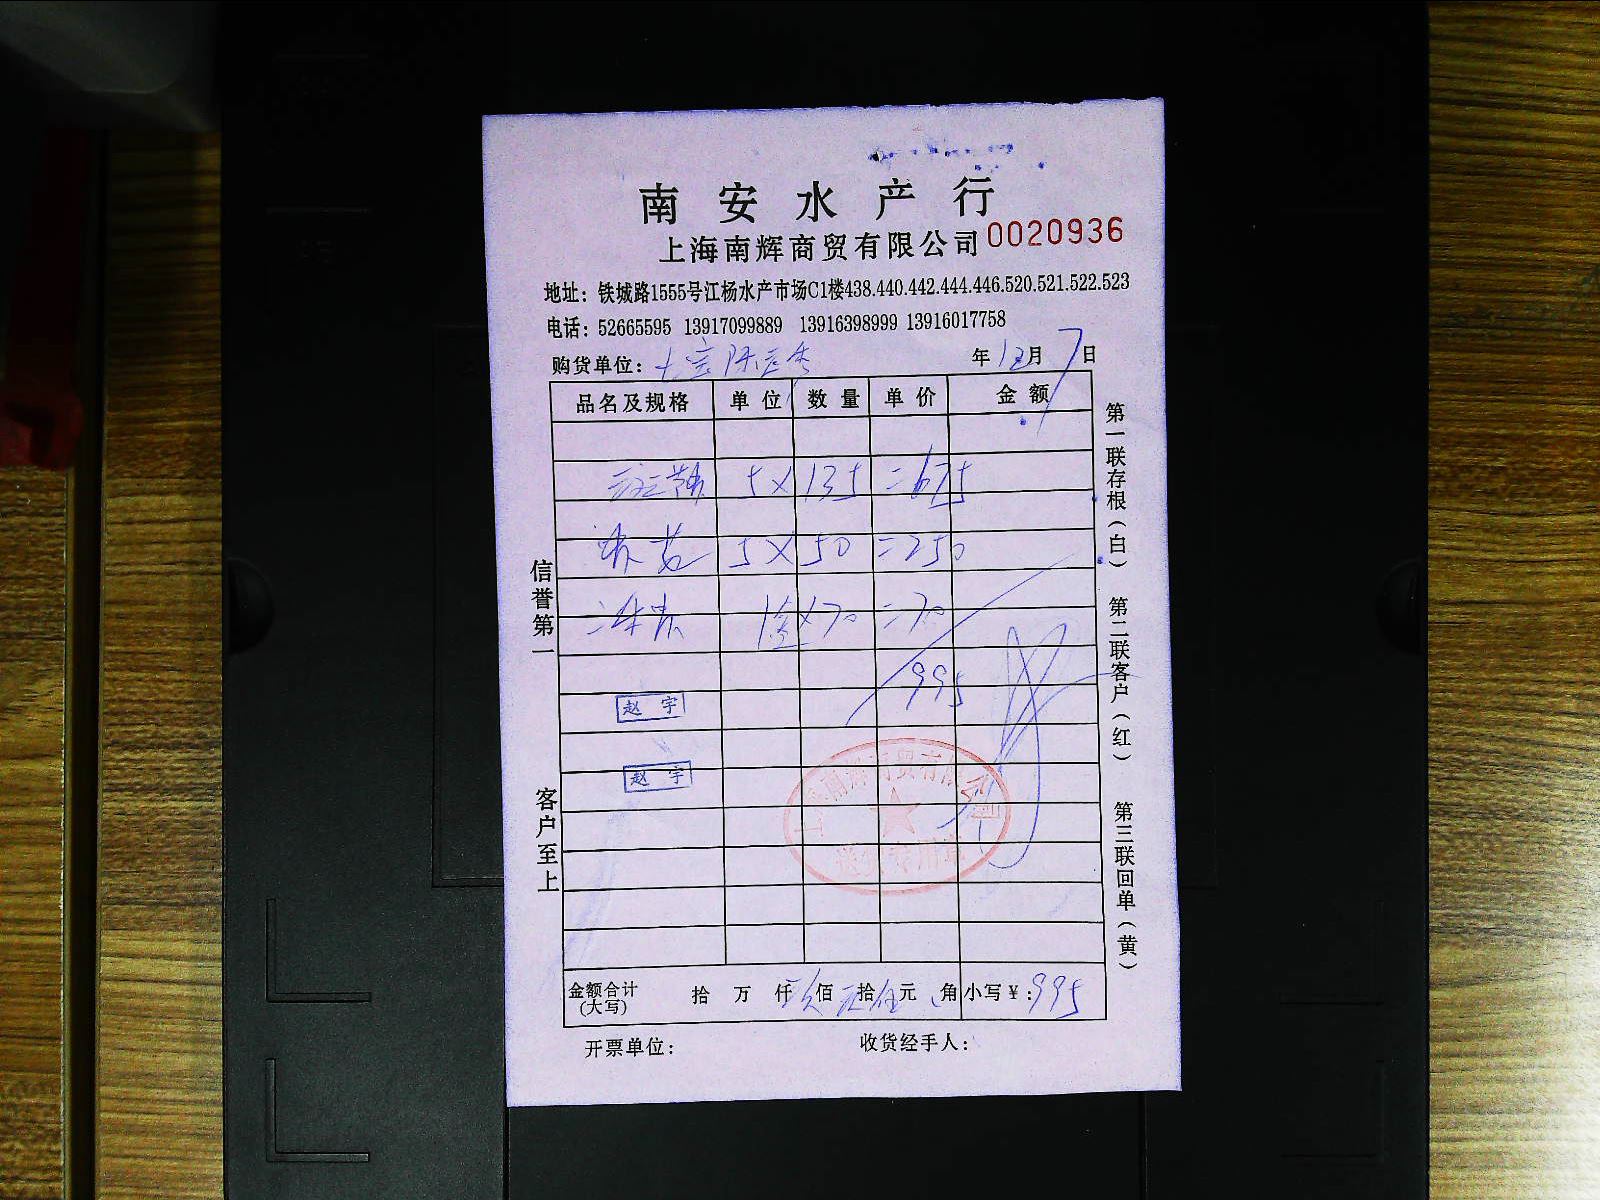 南安水产行
上海南辉商贸有限公司 0020936
地址：铁城路1555号江杨水产市场C1楼438.440.442.444.446.520.521.522.523
电话：52665595 13917099889 13916398999 13916017758
购货单位： 年12月7日
品名及规格 单位 数量 单价 金额
5×135=675
5×50=250
1×70=70
995
赵宇
赵宇
金额合计(大写) 拾 万 仟 佰 拾 元 角 小写￥：995
开票单位： 收货经手人：
信誉第一
客户至上
第一联存根（白）
第二联客户（红）
第三联回单（黄）